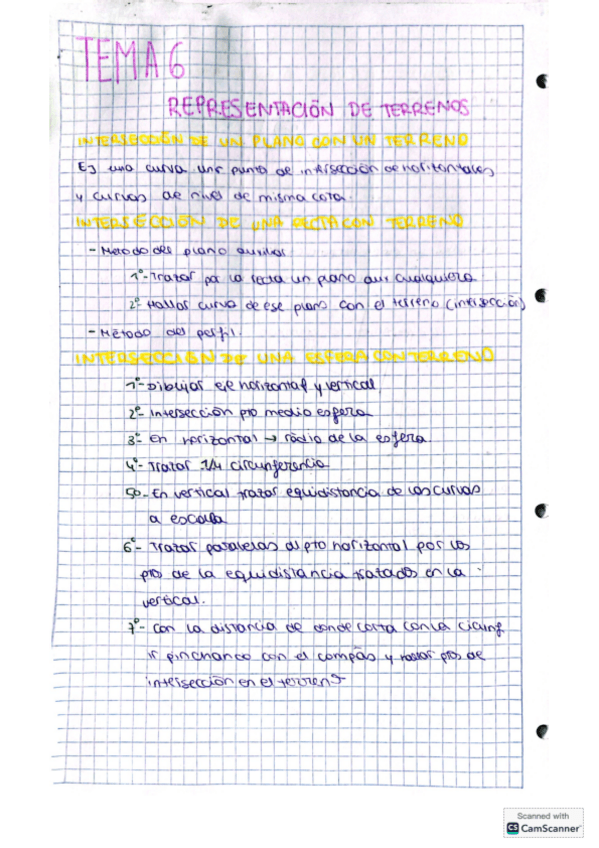 TEMA 6
REPRESENTACIÓN DE TERRENOS
INTERSECCIÓN DE UN PLANO CON UN TERRENO
Es una curva une punto de intersección de horizontales
y curvas de nivel de misma cota.
INTERSECCIÓN DE UNA RECTA CON TERRENO
- Método del plano auxiliar
1º- Trazar por la recta un plano aux cualquiera
2º Hallar curva de ese plano con el terreno (intersección)
- Método del perfil.
INTERSECCIÓN DE UNA ESFERA CON TERRENO
1º- Dibujar eje horizontal y vertical
2º- Intersección pto medio esfera
3º- En horizontal → radio de la esfera
4º- Trazar 1/4 circunferencia
5º- En vertical trazar equidistancia de las curvas
a escala
6º- Trazar paralelas al pto horizontal por los
ptos de la equidistancia trazados en la
vertical.
7º- Con la distancia de donde corta con la circunf
ir pinchando con el compás y trazar ptos de
intersección en el terreno
Scanned with
CS CamScanner